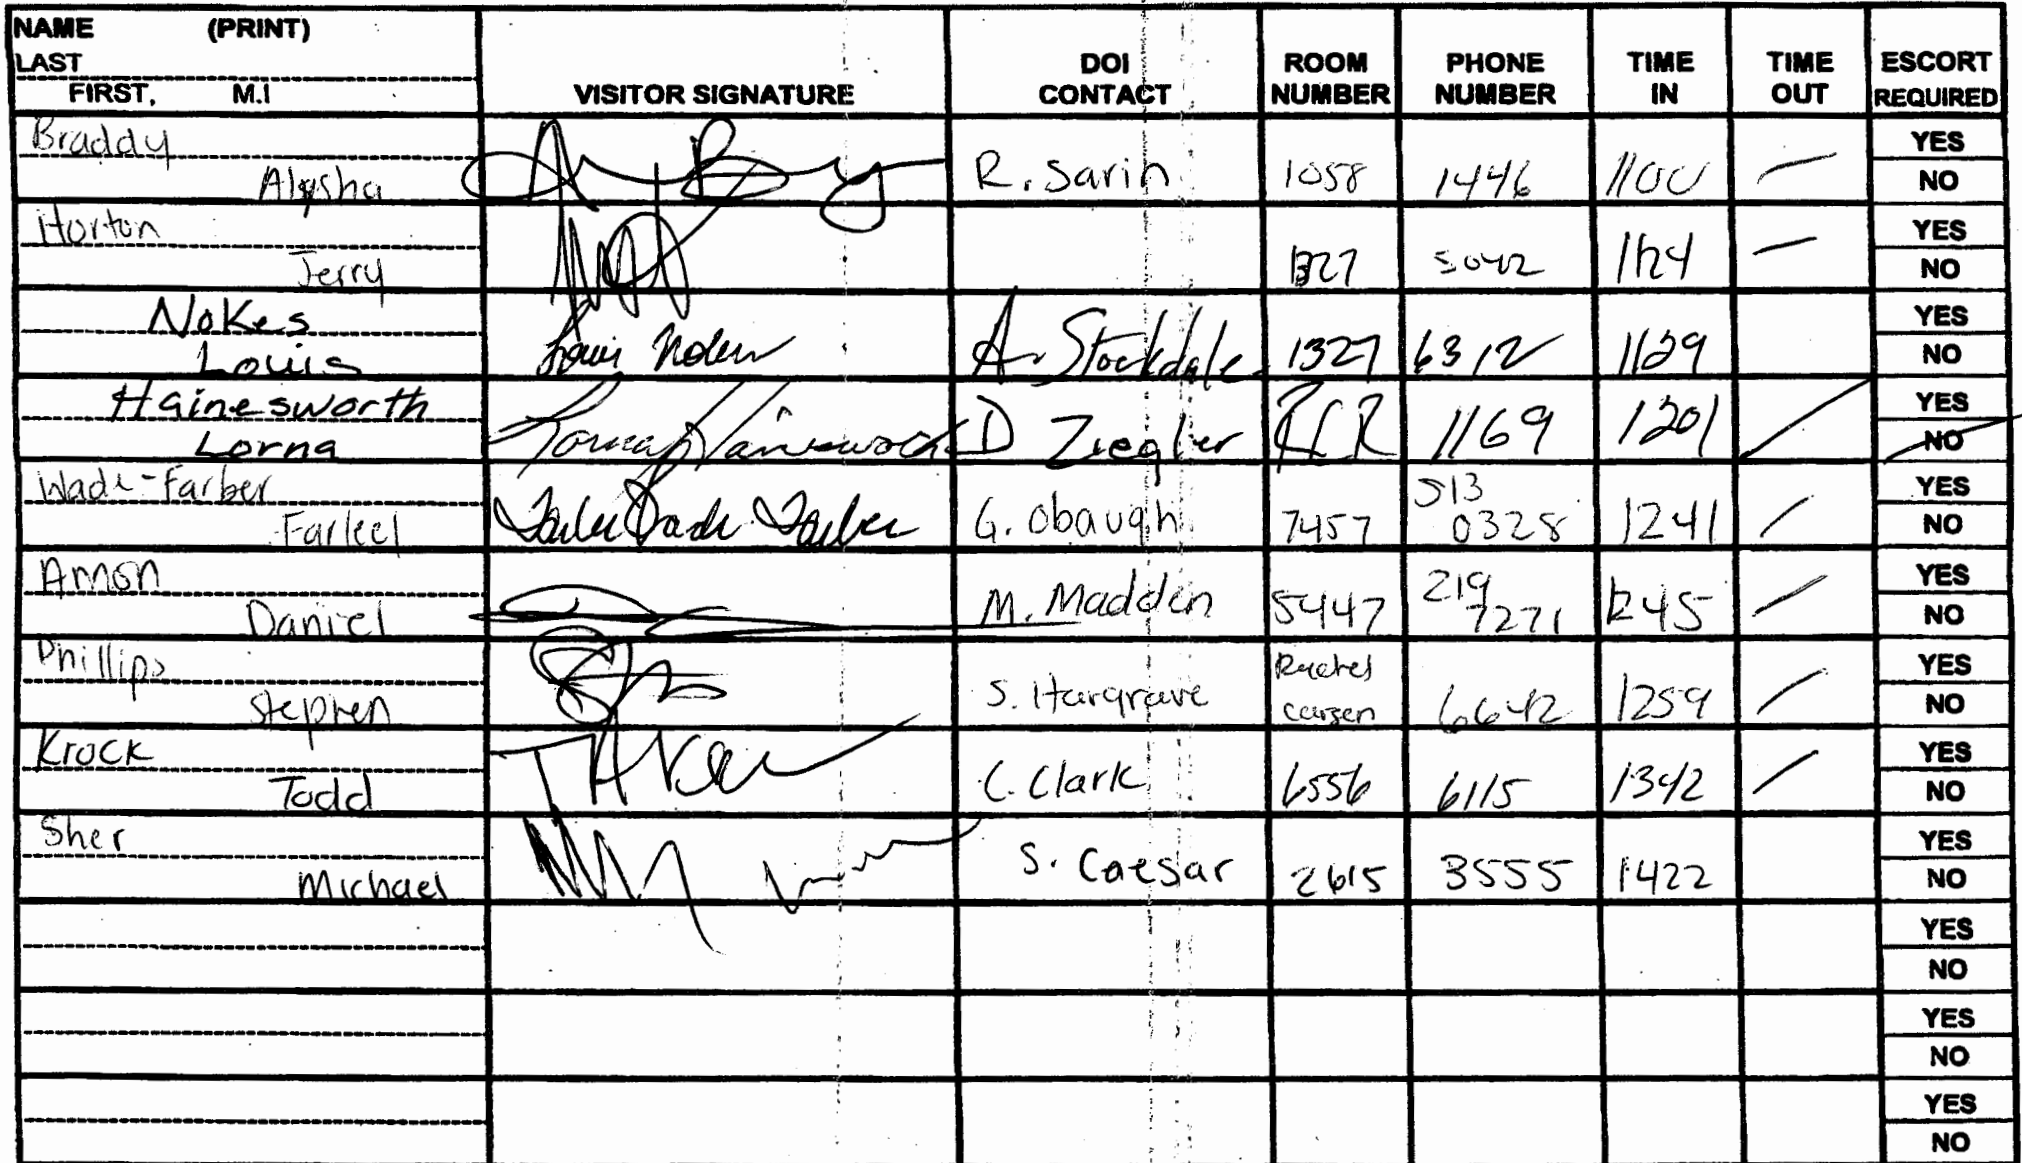 NAME (PRINT)
LAST
FIRST, M.I
VISITOR SIGNATURE
DOI CONTACT
ROOM NUMBER
PHONE NUMBER
TIME IN
TIME OUT
ESCORT REQUIRED
Braddy
Alysha
R. Sarin 1058 1446 1100 —
YES
NO
Horton
Jerry
1327 5042 1124 —
YES
NO
Nokes
Louis
A. Stockdale 1327 6312 1129
YES
NO
Hainesworth
Lorna
D Ziegler RCR 1169 1201 /
YES
NO
Wade-Farber
Farleel
G. Obaugh 7457 513 0328 1241 /
YES
NO
Amon
Daniel
M. Madden 5447 219 7271 1245 /
YES
NO
Phillips
Stephen
S. Hargrave Rachel Carsen 6642 1259 /
YES
NO
Krock
Todd
C. Clark 6556 6115 1342 /
YES
NO
Sher
Michael
S. Caesar 2615 3555 1422
YES
NO
YES
NO
YES
NO
YES
NO